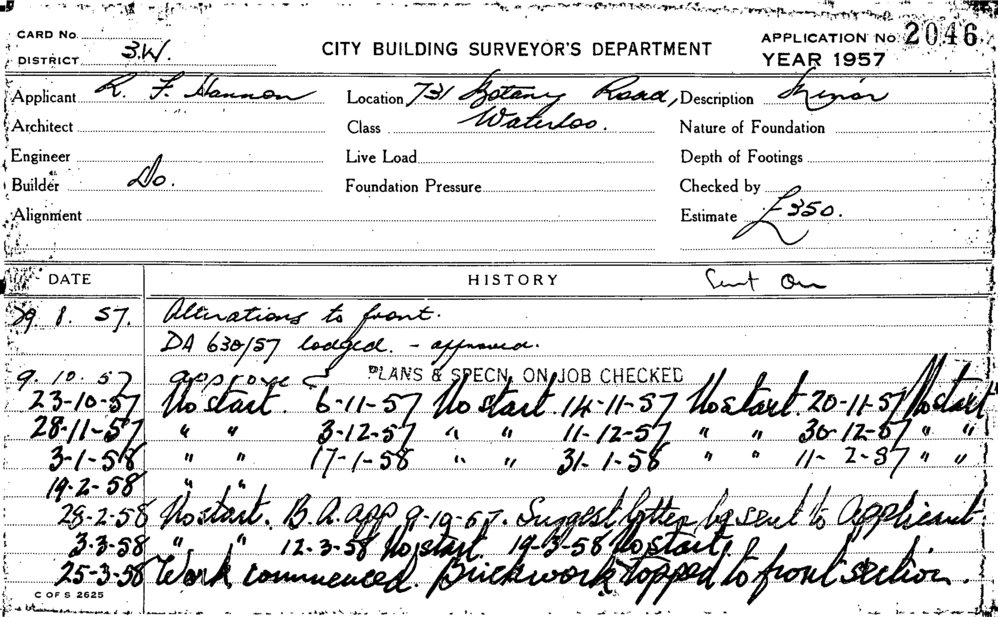 CARD No.
DISTRICT 3.W.
CITY BUILDING SURVEYOR'S DEPARTMENT
APPLICATION No. 2046
YEAR 1957
Applicant R. F. Hannon
Location 731 Botany Road,
Waterloo.
Description Minor
Architect
Class
Nature of Foundation
Engineer
Live Load
Depth of Footings
Builder Do.
Foundation Pressure
Checked by
Alignment
Estimate £350.
DATE
HISTORY
Sent On
29. 8. 57. Alterations to front.
DA 630/57 lodged. - approved.
9. 10. 57 approved PLANS & SPECN. ON JOB CHECKED
23-10-57 No start. 6-11-57 No start. 14-11-57 No start. 20-11-57 No start
28-11-57 " " 3-12-57 " " 11-12-57 " " 30-12-57 " "
3-1-58 " " 17-1-58 " " 31-1-58 " " 11-2-57 " "
19-2-58 " "
28-2-58 No start. B.A. app 9-10-57. Suggest letter be sent to Applicant
3-3-58 " " 12-3-58 No start. 19-3-58 No start.
25-3-58 Work commenced. Brickwork topped to front section.
C OF S 2625